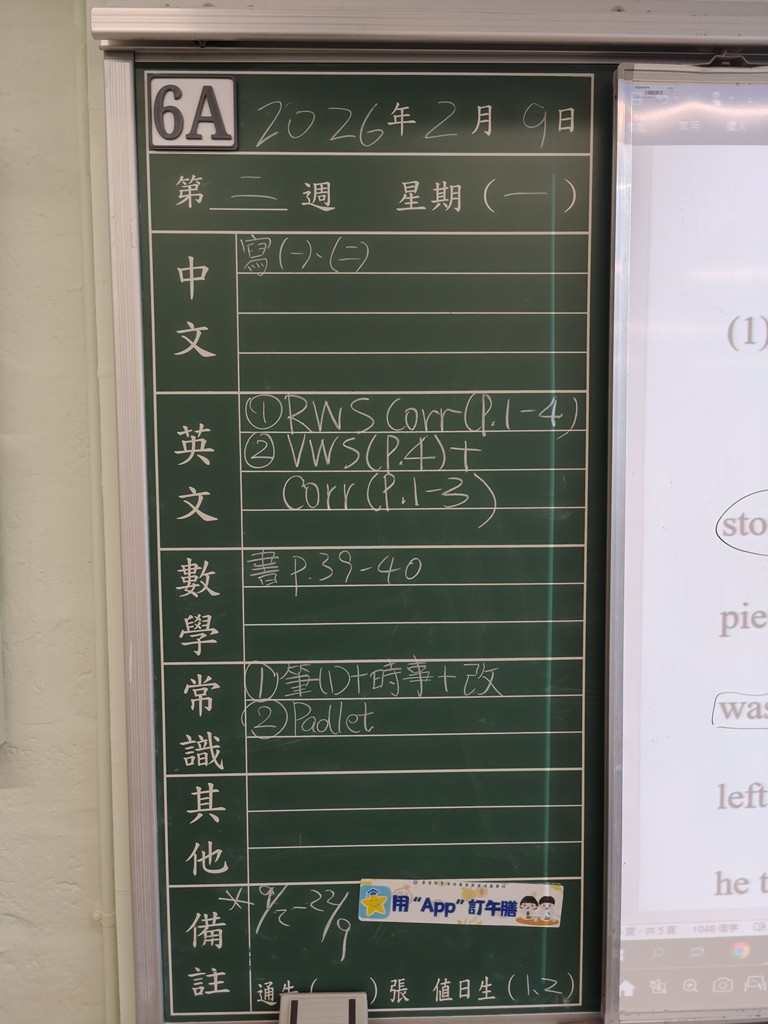 6A 2026年2月9日
第二週 星期(一)
中文
寫(一)、(二)
英文
①RWS Corr(P.1-4)
②VWS(P.4)+
Corr(P.1-3)
數學
書P.39-40
常識
①筆(1)+時事+改
②Padlet
其他
備註
*9/2-22/9
用“App”訂午膳
通告( )張 值日生(1,2)
(1)
sto
pie
was
left
he t